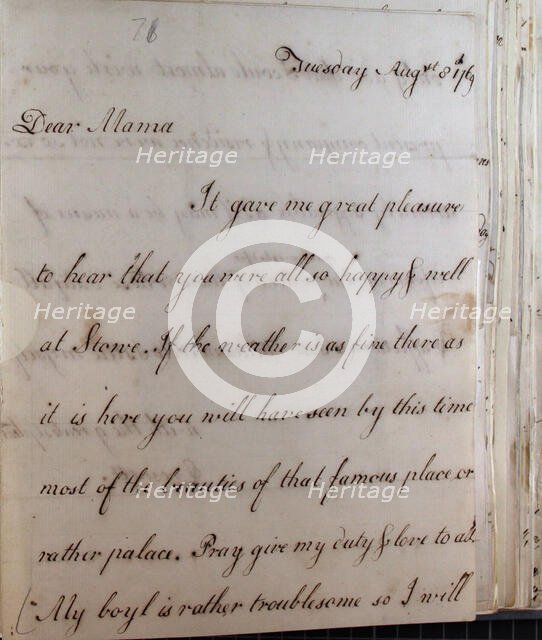 76
Tuesday Augst 8th 1769
Dear Mama
It gave me great pleasure
to hear that you were all so happy & well
at Stowe. If the weather is as fine there as
it is here you will have seen by this time
most of the beauties of that famous place or
rather palace. Pray give my duty & love to all
My boyl is rather troublesome so I will
Heritage Heritage
Heritage Heritage
Heritage Heritage
Heritage Heritage